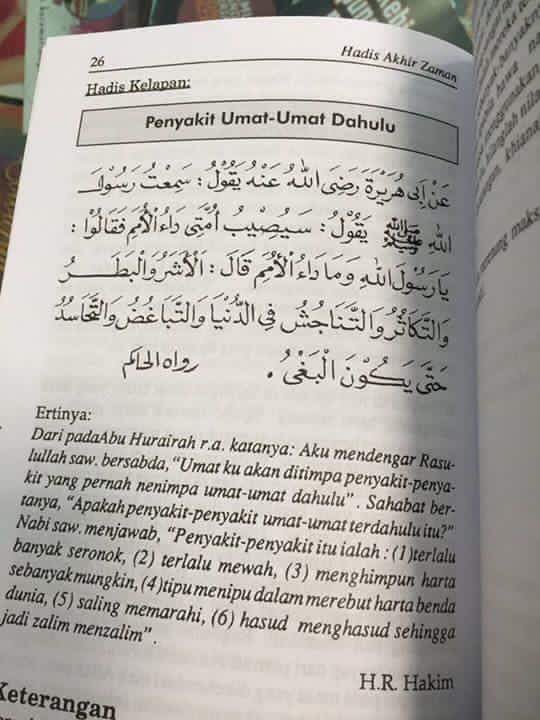 26
Hadis Akhir Zaman
Hadis Kelapan:
Penyakit Umat-Umat Dahulu
عَنْ اَبِى هُرَيْرَةَ رَضِىَ اللّٰهُ عَنْهُ يَقُوْلُ : سَمِعْتُ رَسُوْلَ
اللّٰهِ ﷺ يَقُوْلُ : سَيُصِيْبُ اُمَّتِى دَاءُ الْأُمَمِ فَقَالُوْا :
يَارَسُوْلَ اللّٰهِ وَمَا دَاءُ الْأُمَمِ قَالَ : اَلْأَشَرُ وَالْبَطَرُ
وَالتَّكَاثُرُ وَالتَّنَاجُشُ فِى الدُّنْيَا وَالتَّبَاغُضُ وَالتَّحَاسُدُ
حَتَّى يَكُوْنَ الْبَغْىُ . رواه الحاكم
Ertinya:
Dari padaAbu Hurairah r.a. katanya: Aku mendengar Rasu-
lullah saw. bersabda, “Umat ku akan ditimpa penyakit-penya-
kit yang pernah nenimpa umat-umat dahulu”. Sahabat ber-
tanya, “Apakah penyakit-penyakit umat-umat terdahulu itu?”
Nabi saw. menjawab, “Penyakit-penyakit itu ialah : (1)terlalu
banyak seronok, (2) terlalu mewah, (3) menghimpun harta
sebanyak mungkin, (4)tipu menipu dalam merebut harta benda
dunia, (5) saling memarahi, (6) hasud menghasud sehingga
jadi zalim menzalim”.
H.R. Hakim
Keterangan